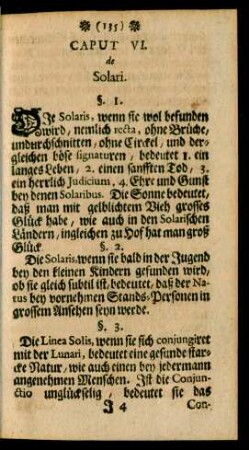 (135)
CAPUT VI.
de
Solari.
§. 1.
DJe Solaris, wenn sie wol befunden
wird, nemlich recta, ohne Brüche,
undurchschnitten, ohne Circkel, und der-
gleichen böse signaturen, bedeutet 1. ein
langes Leben, 2. einen sanfften Tod, 3.
ein herrlich Judicium, 4. Ehre und Gunst
bey denen Solaribus. Die Sonne bedeutet,
daß man mit gelblichtem Vieh grosses
Glück habe, wie auch in den Solarischen
Ländern, ingleichen zu Hof hat man groß
Glück
§. 2.
Die Solaris, wenn sie bald in der Jugend
bey den kleinen Kindern gefunden wird,
ob sie gleich subtil ist, bedeutet, daß der Na-
tus bey vornehmen Stands-Personen in
grossem Ansehen seyn werde.
§. 3.
Die Linea Solis, wenn sie sich conjungiret
mit der Lunari, bedeutet eine gesunde star-
cke Natur, wie auch einen bey jedermann
angenehmen Menschen. Ist die Conjun-
ctio unglückselig, bedeutet sie das
J 4
Con-